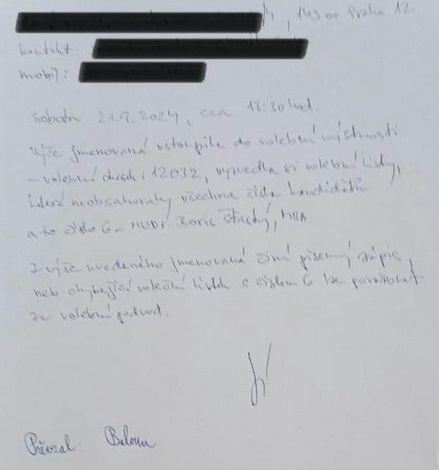 /4, 143 00 Praha 12
kontakt:
mobil:
Sobota 21.9.2024, cca 13:30 hod.
Výše jmenovaná vstoupila do volební místnosti
– volební okrsek: 12032, vyzvedla si volební lístky,
které neobsahovaly všechna čísla kandidátů
a to číslo 6 – MUDr Boris Šťastný, MBA
Z výše uvedeného jmenovaná činí písemný zápis,
neb chybějící volební lístek s číslem 6 lze považovat
za volební podvod.
Převzal: Beloun